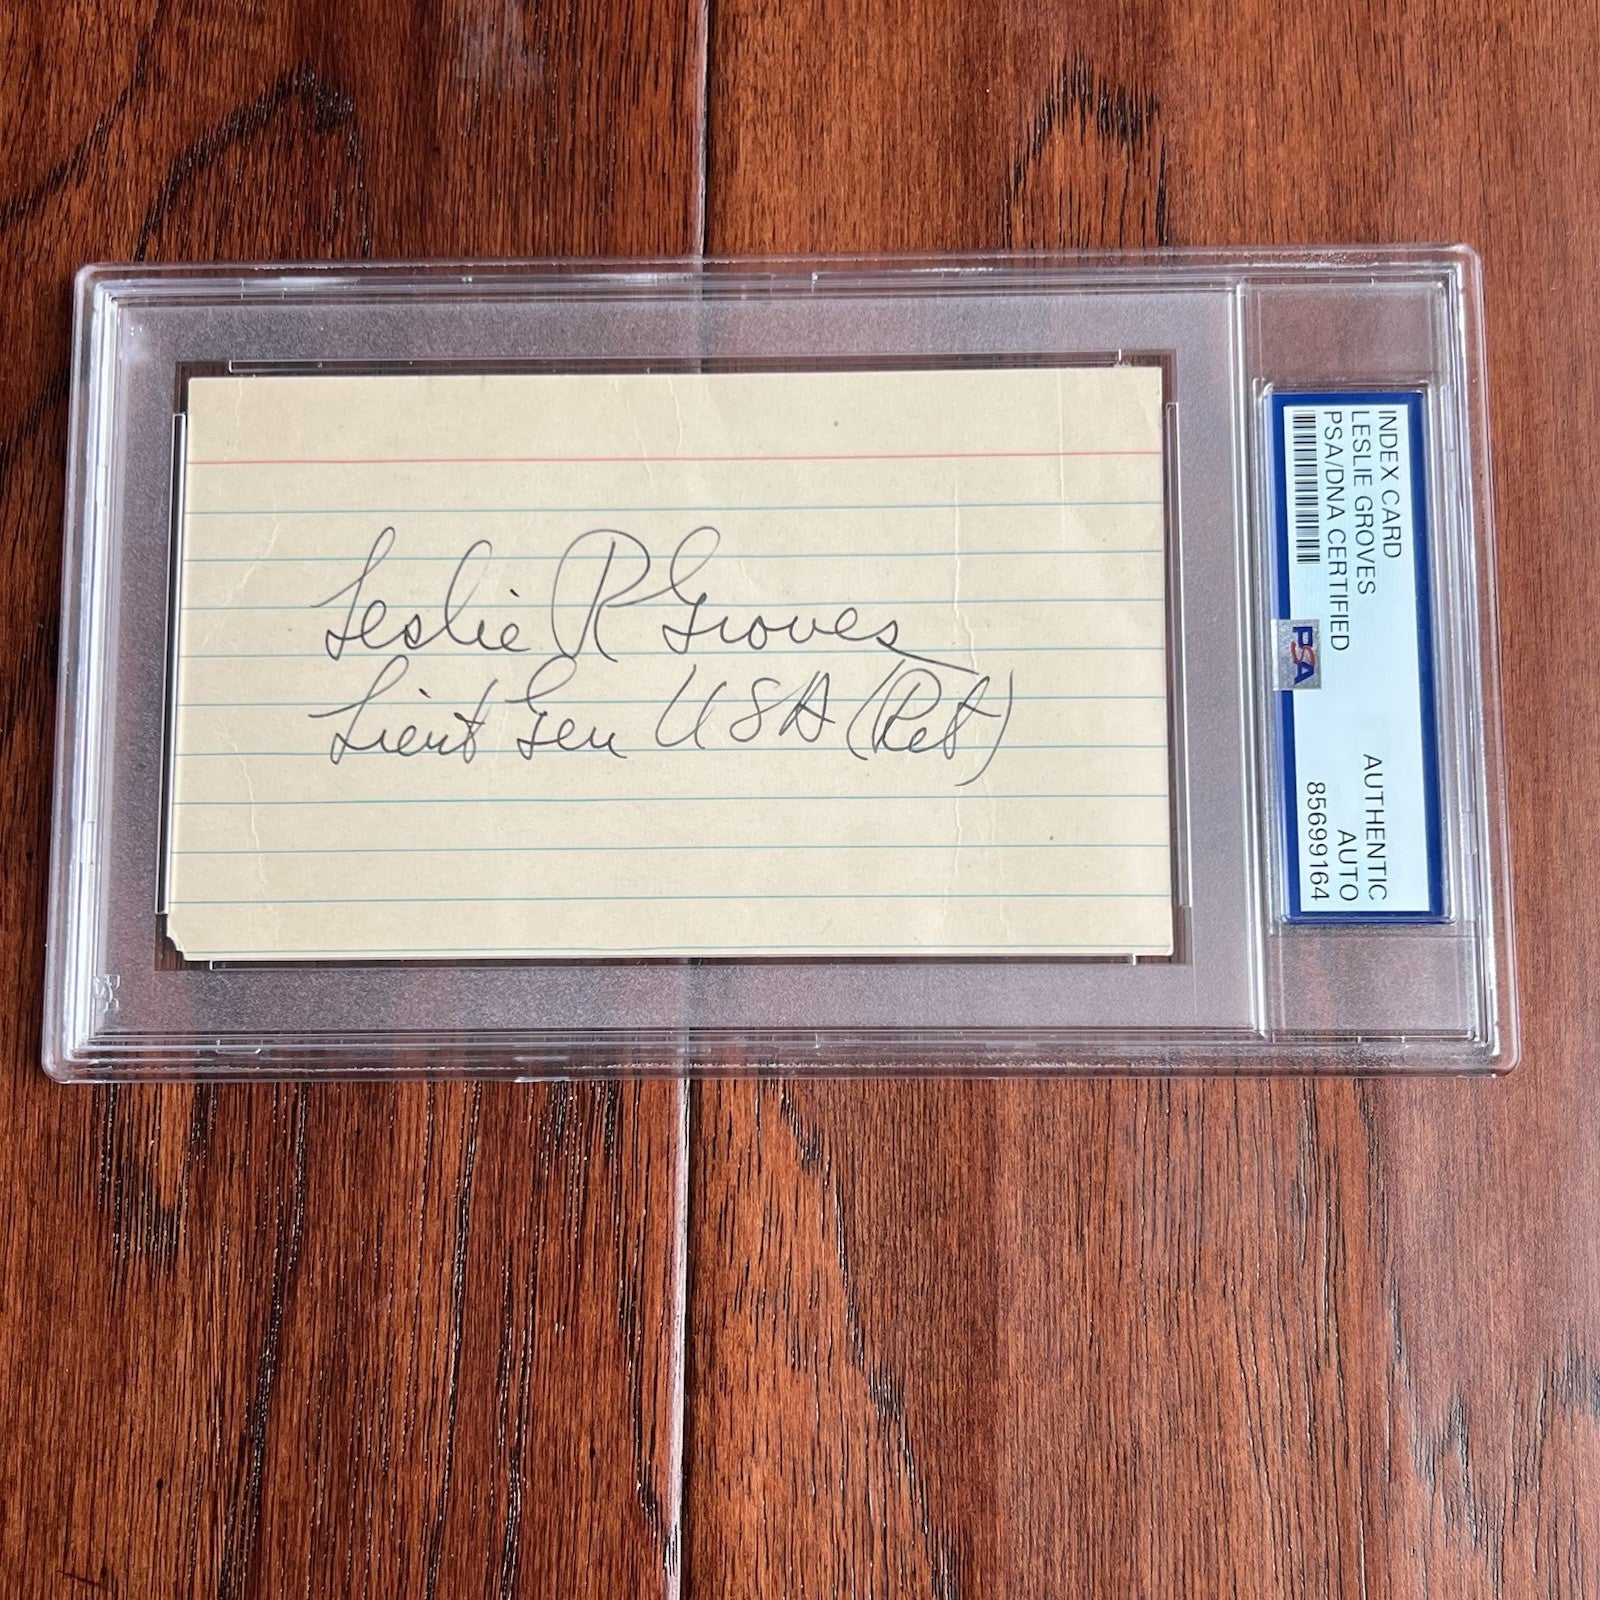 Leslie R Groves
Lieut Gen USA (Ret)
INDEX CARD
LESLIE GROVES
PSA/DNA CERTIFIED
PSA
AUTHENTIC
AUTO
85699164